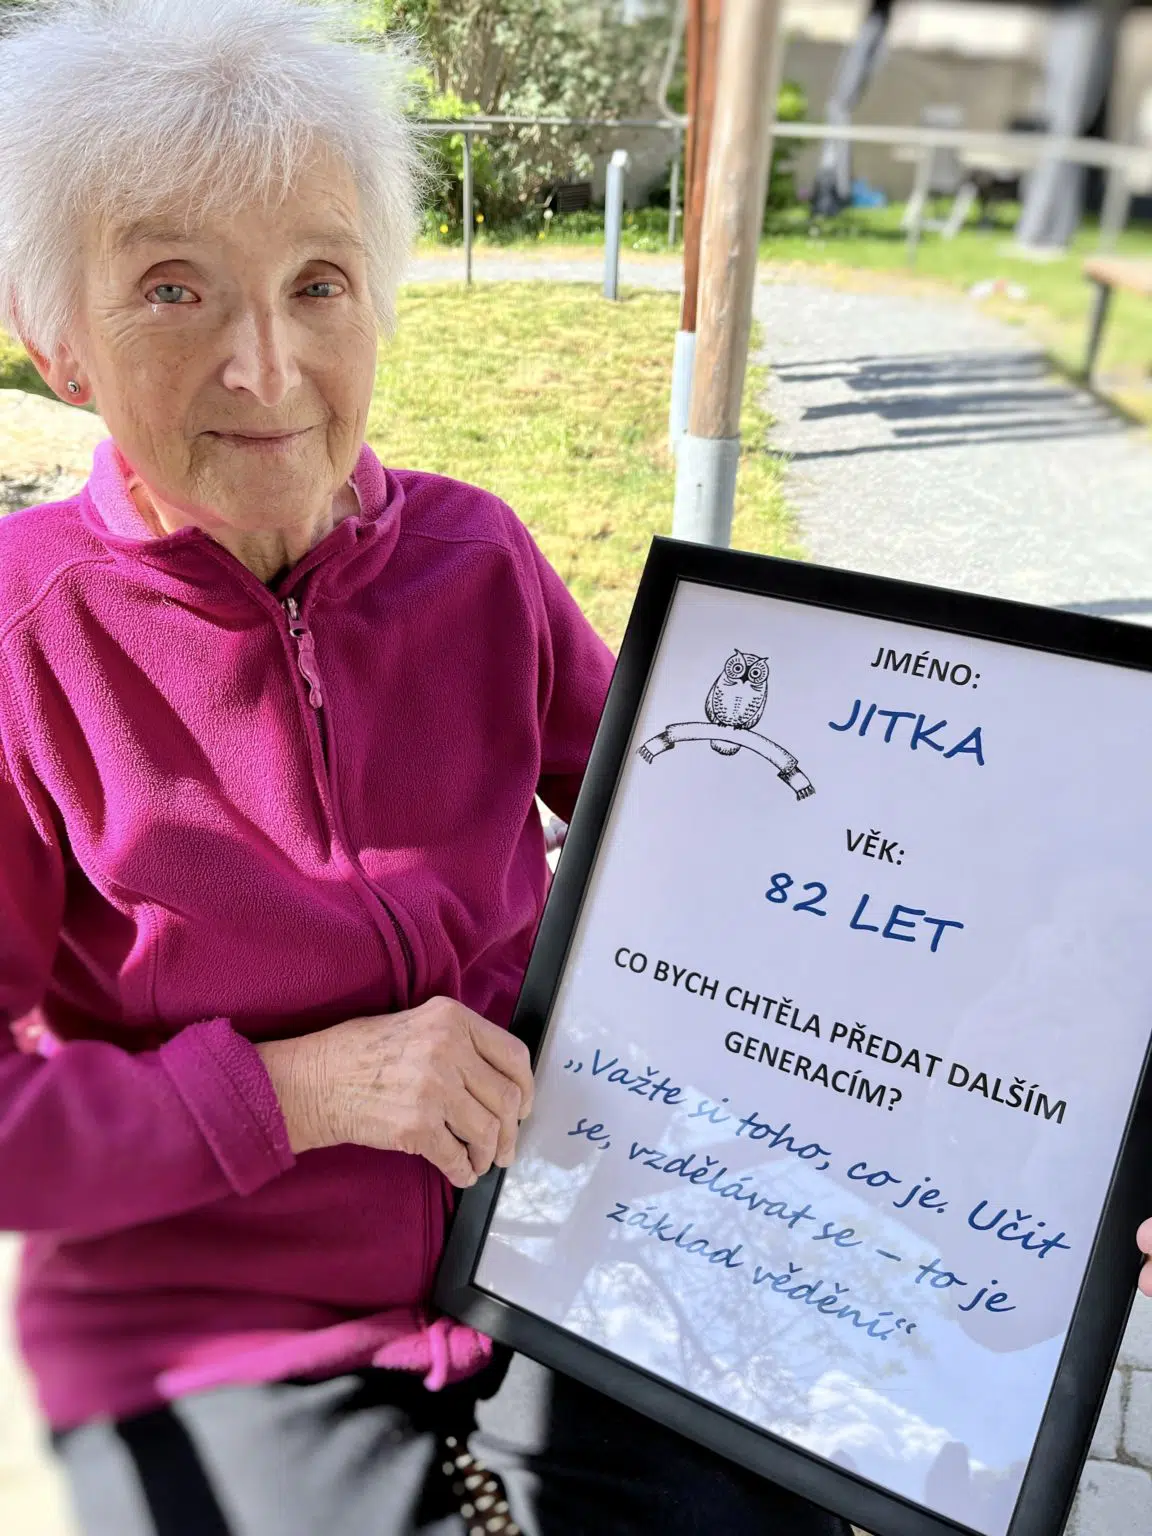 JMÉNO:
JITKA
VĚK:
82 LET
CO BYCH CHTĚLA PŘEDAT DALŠÍM
GENERACÍM?
„Važte si toho, co je. Učit
se, vzdělávat se – to je
základ vědění.“